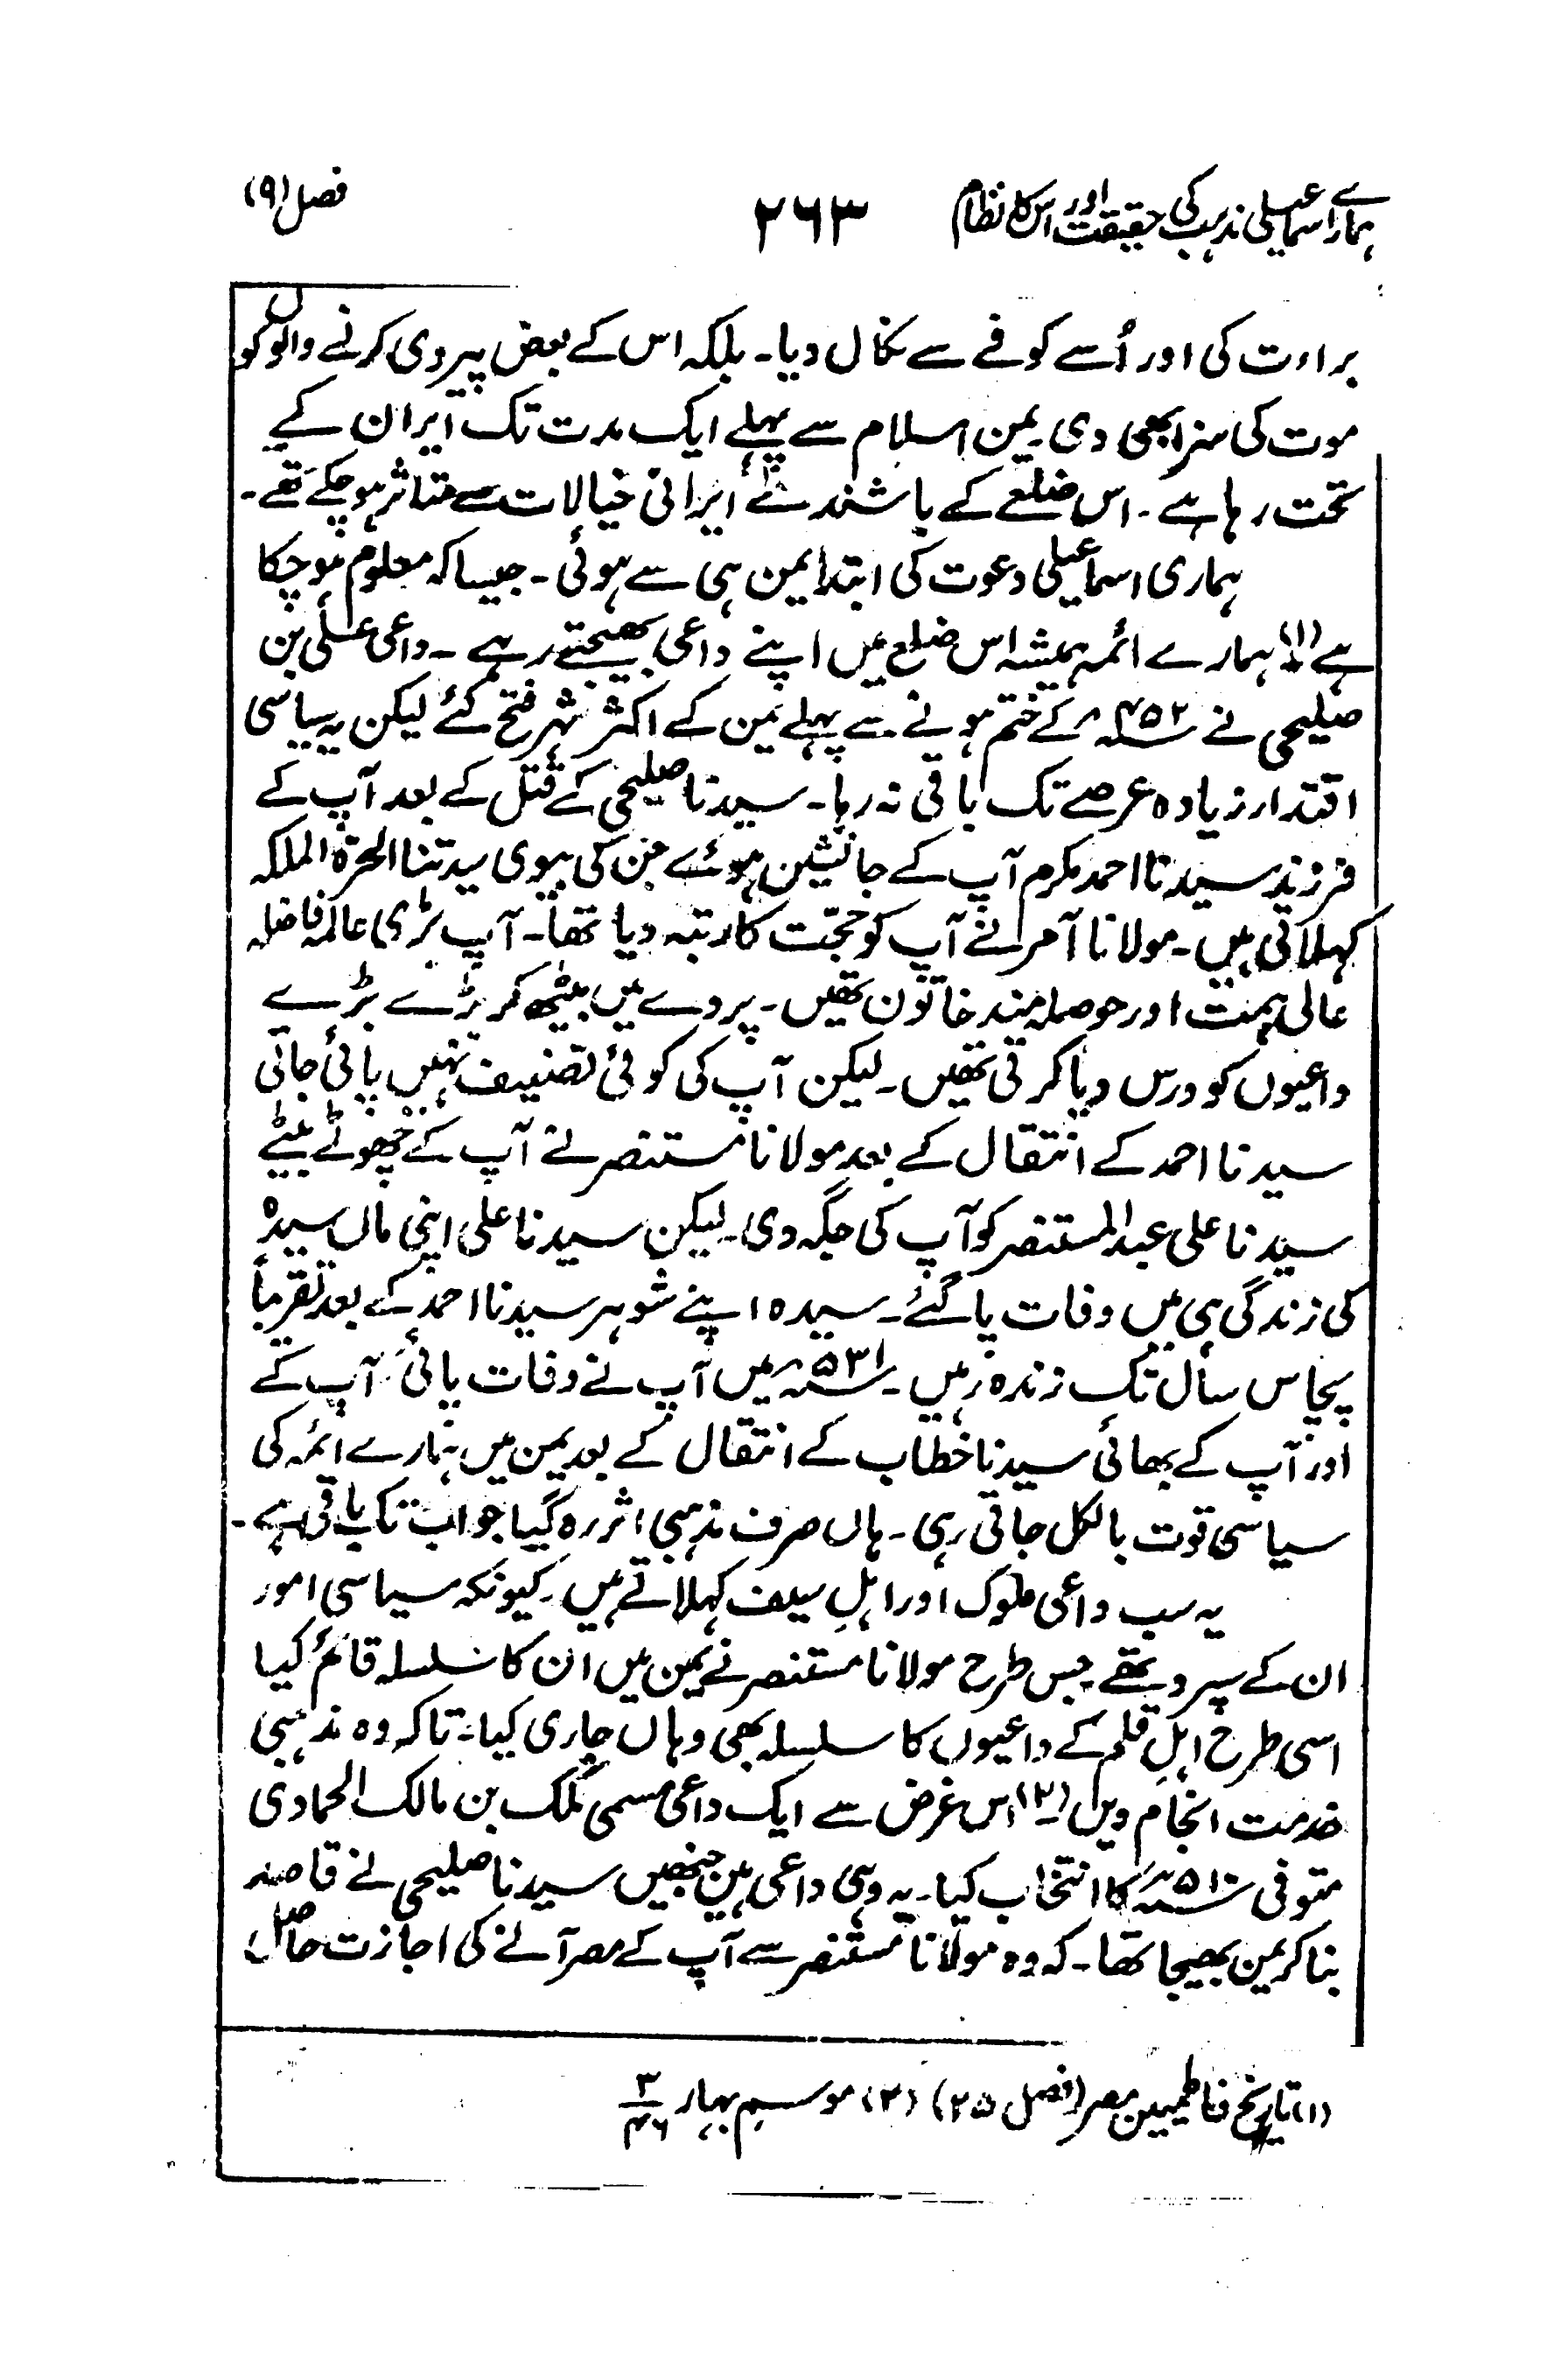 ہمارے اسماعیلی مذہب کی حقیقت اور اس کا نظام ۲۶۳ فصل (۹)
براءت کی اور اُسے کوفے سے نکال دیا۔ بلکہ اس کے بعض پیروی کرنے والوں کو
موت کی سزا بھی دی۔ یمن اسلام سے پہلے ایک مدت تک ایران کے
تحت رہا ہے۔ اس ضلعے کے باشندے ایرانی خیالات سے متاثر ہو چکے تھے۔
ہماری اسماعیلی دعوت کی ابتدا یمن ہی سے ہوئی۔ جیسا کہ معلوم ہو چکا
ہے (۱)۔ ہمارے ائمہ ہمیشہ اس ضلع میں اپنے داعی بھیجتے رہے۔ داعی علی بن
صلیحی نے ۴۵۲ھ کے ختم ہونے سے پہلے یمن کے اکثر شہر فتح کئے لیکن یہ سیاسی
اقتدار زیادہ عرصے تک باقی نہ رہا۔ سیدنا صلیحی کے قتل کے بعد آپ کے
فرزند سیدنا احمد مکرم آپ کے جانشین ہوئے جن کی بیوی سیدتنا الحرۃ الملکہ
کہلاتی ہیں۔ مولانا آمر نے آپ کو حجّت کا رتبہ دیا تھا۔ آپ بڑی عالمہ فاضلہ
عالی ہمت اور حوصلہ مند خاتون تھیں۔ پردے میں بیٹھ کر بڑے بڑے
داعیوں کو درس دیا کرتی تھیں۔ لیکن آپ کی کوئی تصنیف نہیں پائی جاتی
سیدنا احمد کے انتقال کے بعد مولانا مستنصر نے آپ کے چھوٹے بیٹے
سیدنا علی عبد المستنصر کو آپ کی جگہ دی۔ لیکن سیدنا علی اپنی ماں سیدہ
کی زندگی ہی میں وفات پا گئے۔ سیدہ اپنے شوہر سیدنا احمد کے بعد تقریباً
پچاس سال تک زندہ رہیں۔ ۵۳۱ھ میں آپ نے وفات پائی۔ آپ کے
اور آپ کے بھائی سیدنا خطاب کے انتقال کے بعد یمن میں ہمارے ائمہ کی
سیاسی قوت بالکل جاتی رہی۔ ہاں صرف مذہبی اثر رہ گیا جو اب تک باقی ہے۔
یہ سب داعی ملوک اور اہلِ سیف کہلاتے ہیں۔ کیونکہ سیاسی امور
ان کے سپرد تھے جس طرح مولانا مستنصر نے یمن میں ان کا سلسلہ قائم کیا
اسی طرح اہلِ قلم کے داعیوں کا سلسلہ بھی وہاں جاری کیا۔ تاکہ وہ مذہبی
خدمت انجام دیں (۲)۔ اس غرض سے ایک داعی مسمی لمک بن مالک الحمادی
متوفی ۵۱۰ھ کا انتخاب کیا۔ یہ وہی داعی ہیں جنھیں سیدنا صلیحی نے قاصد
بنا کر یمن بھیجا تھا۔ کہ وہ مولانا مستنصر سے آپ کے مصر آنے کی اجازت حاصل
(۱) تاریخ فاطمیین مصر (فصل ۲۵) (۲) موسمِ بہار ۳/۴۶